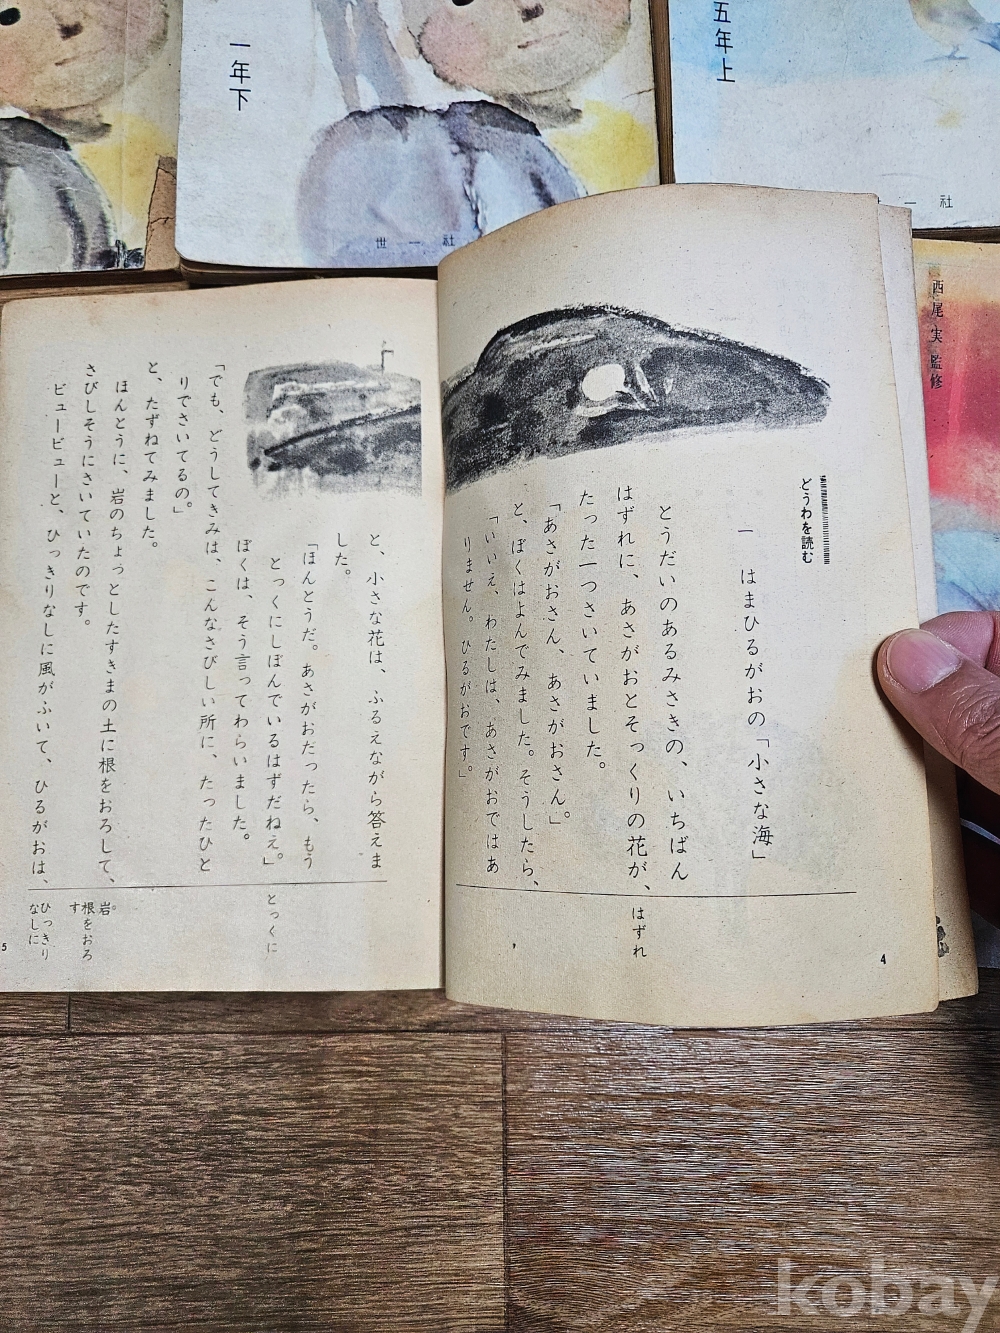 一年下
世一社
五年上
一社
西尾実 監修
どうわを読む
一 はまひるがおの「小さな海」
とうだいのあるみさきの、いちばん
はずれに、あさがおとそっくりの花が、
たった一つさいていました。
「あさがおさん、あさがおさん。」
と、ぼくはよんでみました。そうしたら、
「いいえ、わたしは、あさがおではあ
りません。ひるがおです。」
はずれ
4
と、小さな花は、ふるえながら答えま
した。
「ほんとうだ。あさがおだったら、もう
とっくにしぼんでいるはずだねえ。」
ぼくは、そう言ってわらいました。
「でも、どうしてきみは、こんなさびしい所に、たったひと
りでさいてるの。」
と、たずねてみました。
ほんとうに、岩のちょっとしたすきまの土に根をおろして、
さびしそうにさいていたのです。
ビュービューと、ひっきりなしに風がふいて、ひるがおは、
とっくに
岩。
根をおろ
す
ひっきり
なしに
5
kobay